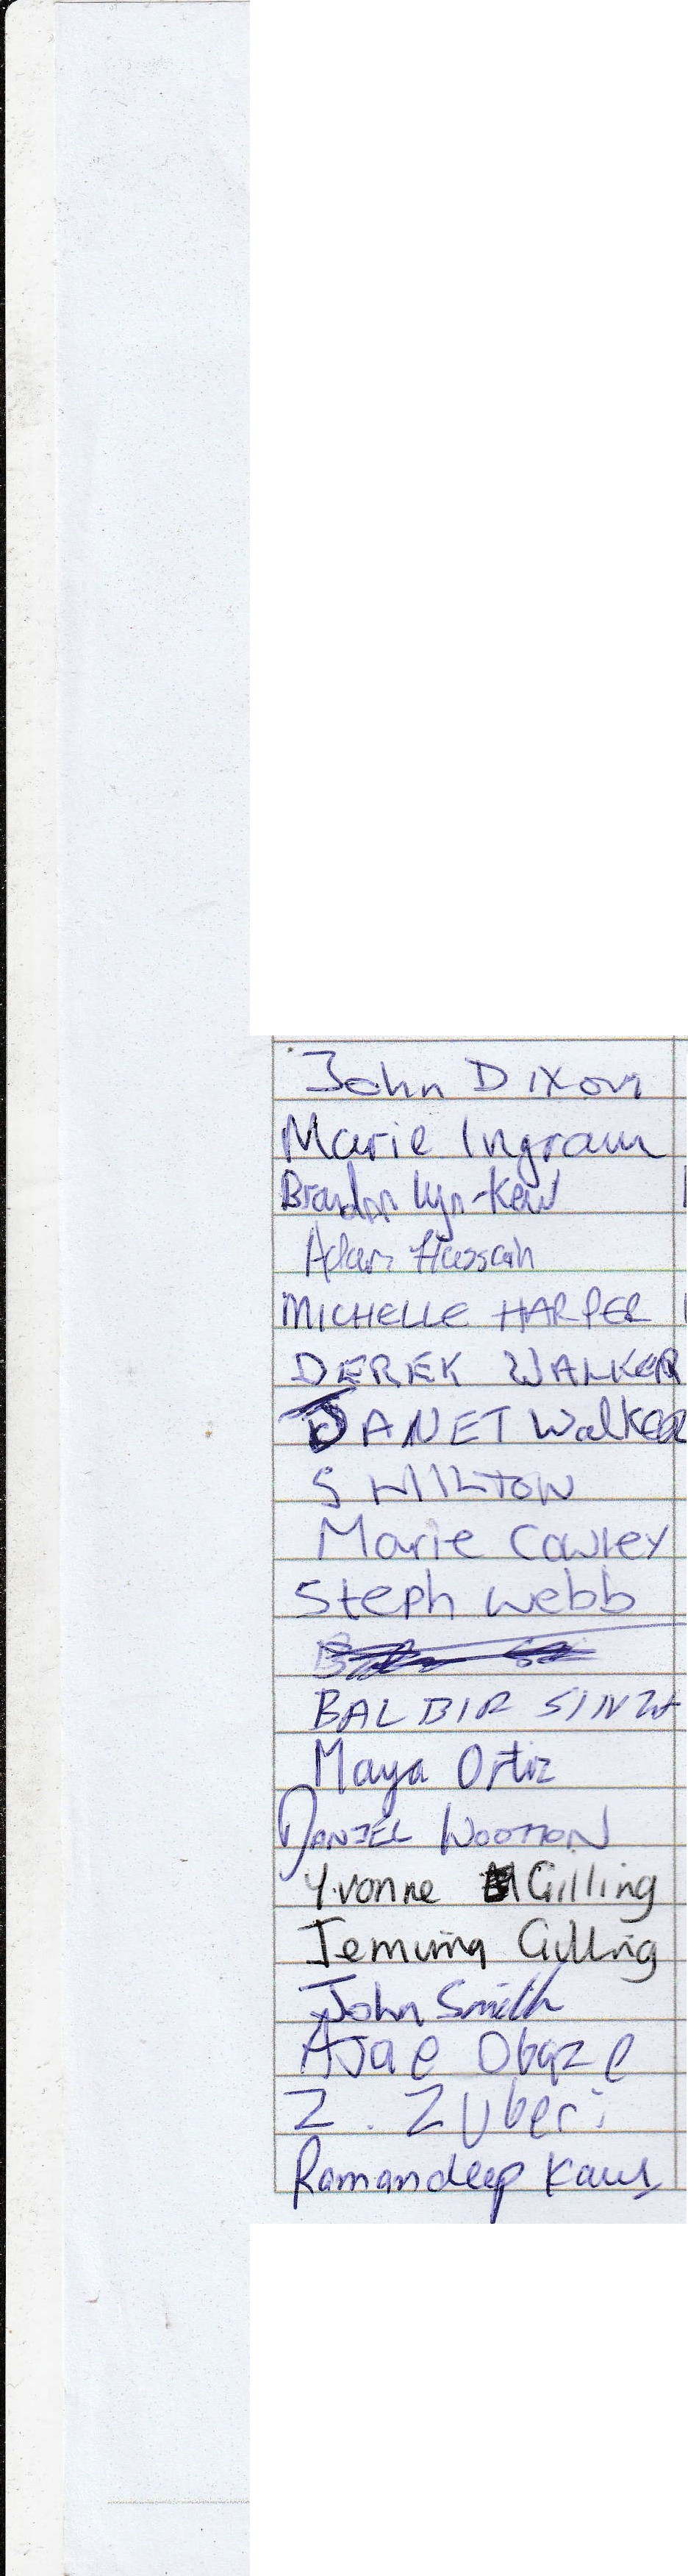 John Dixon
Marie Ingram
Brandon Lyn-Kew
Adam Hussain
MICHELLE HARPER
DEREK WALKER
JANET WALKER
S WILTON
Marie Cawley
Steph Webb
BALBIR SINGH
Maya Ortiz
DANIEL WOOTTON
Yvonne Gilling
Jemima Gilling
John Smith
AJae Obaze
Z. Zuberi
Ramandeep Kaur